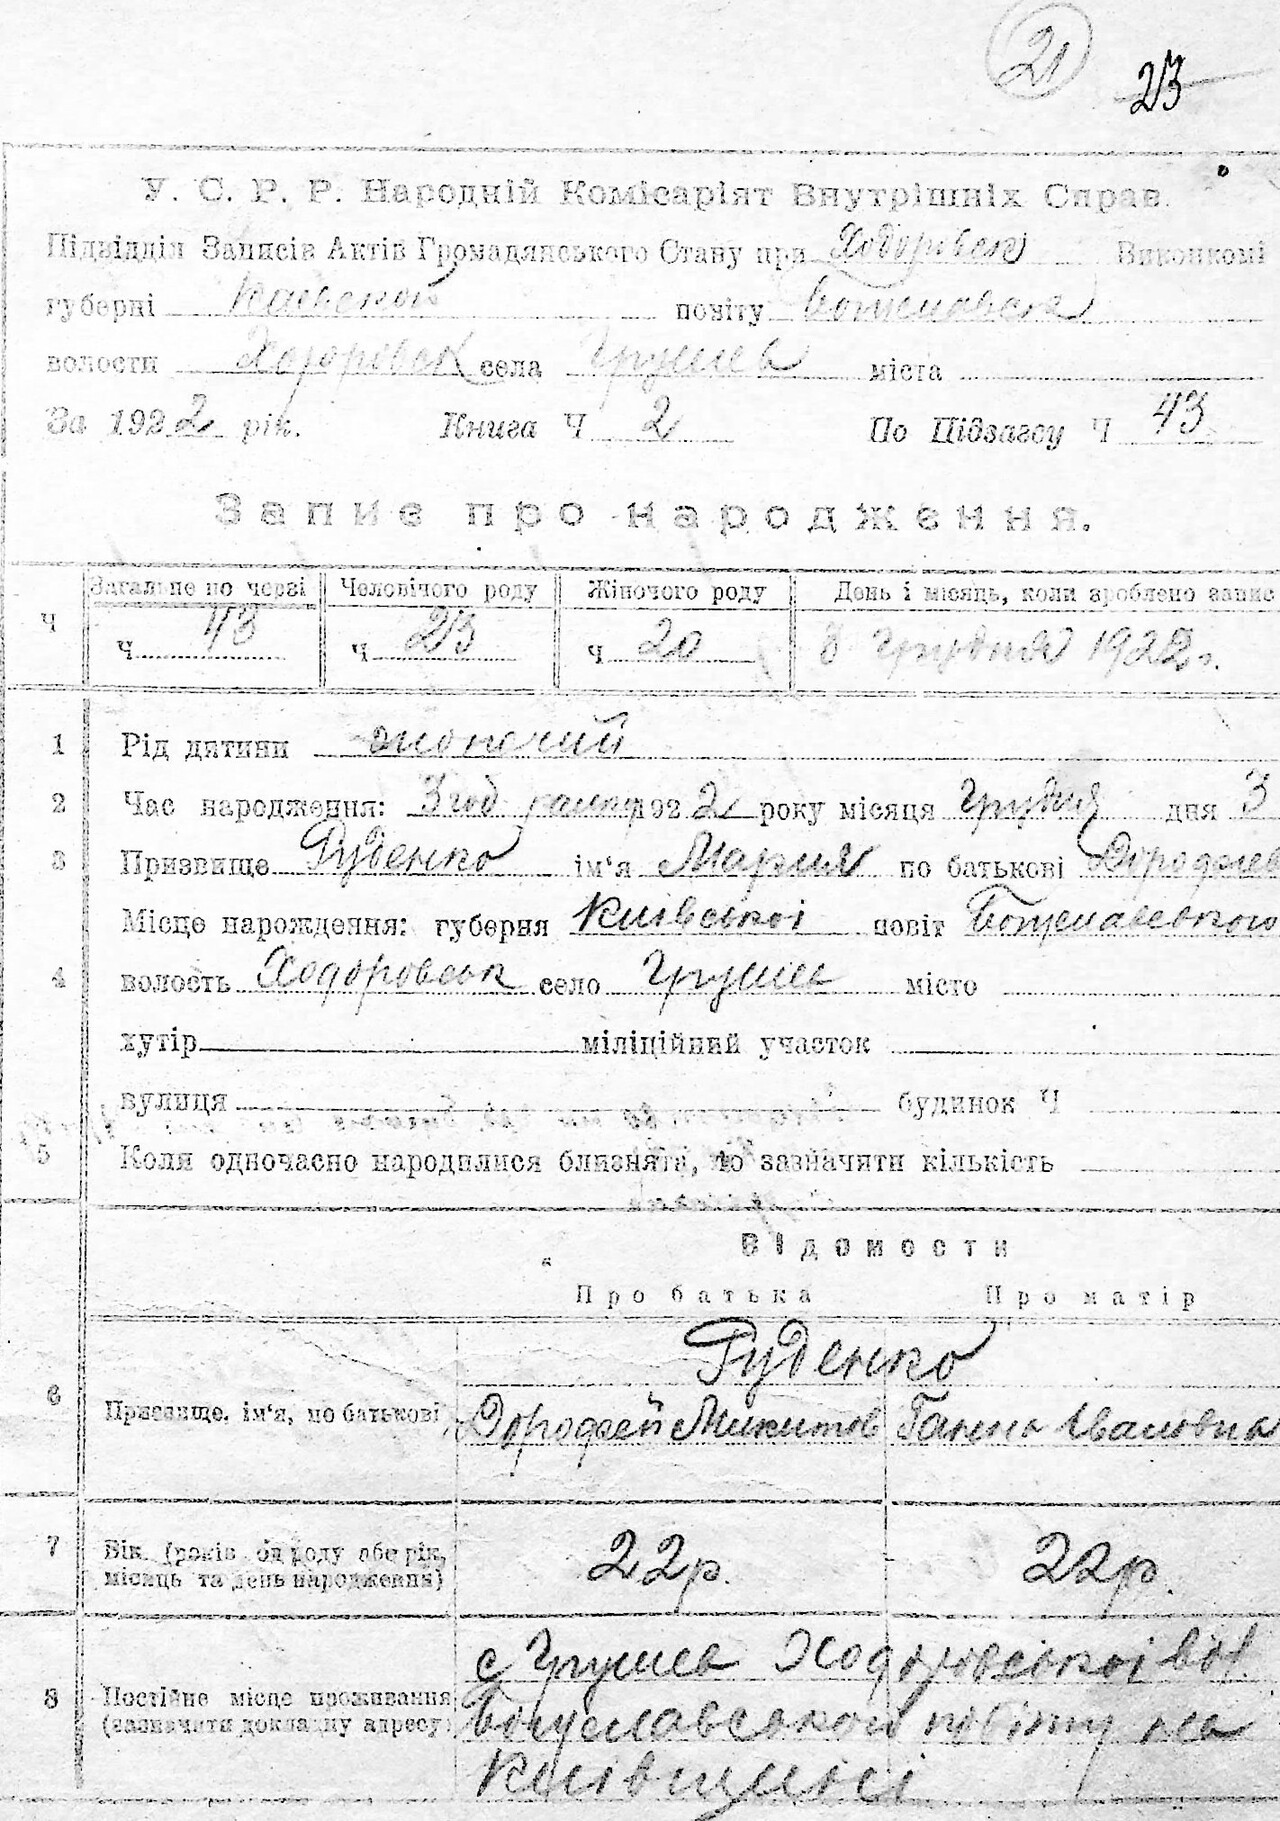 21 23
У. С. Р. Р. Народній Комісаріят Внутрішніх Справ.
Підвідділ Записів Актів Громадянського Стану при Ходорівськ Виконкомі
губерні Київской повіту Богуславськ
волости Ходоровск села Грушев міста
За 1922 рік. Книга Ч 2 По Підзагсу Ч 43
Запис про народження.
Ч Загальне по черзі Человічого роду Жіночого роду День і місяць, коли зроблено запис
Ч 43 Ч 23 Ч 20 8 Грудня 1922 г.
1 Рід дятини жоночий
2 Час народження: 3 год ранку 1922 року місяця Грудня дня 3
3 Призвище Руденко ім'я Мария по батькові Дорофеев
Місце народження: губерня Київської повіт Богуславського
4 волость Ходоровськ село Грушев місто
хутір міліційний участок
вулиця будинок Ч
5 Коли одночасно народилися близнята, то зазначити кількість
Відомости
Про батька Про матір
Руденко
6 Призвище, ім'я, по батькові Дорофей Микитов Ганна Ивановна
7 Вік (років од роду або рік, 22 р. 22 р.
місяць та день народження)
с Грушев Ходоровської вол.
8 Постійне місце проживання Богуславського повіту на
(зазначити докладну адресу)
Київщині